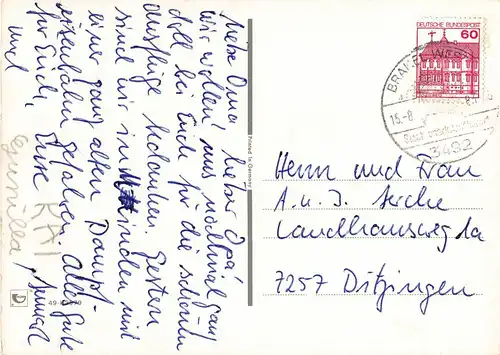 Liebe Oma, lieber Opa!
Wir wollen uns nochmal ganz
doll bei Euch für die schönen
Ausflüge bedanken. Gestern
sind wir in Minden mit
einer ganz alten Dampf-
eisenbahn gefahren. Alles Gute
für Euch, Eure
und
KAI
Gunilla,
Printed in Germany
DEUTSCHE BUNDESPOST
60
BRAKEL
15.-8.
3492
Herrn und Frau
A. u. J. Lerche
Landhausweg 1a
7257 Ditzingen